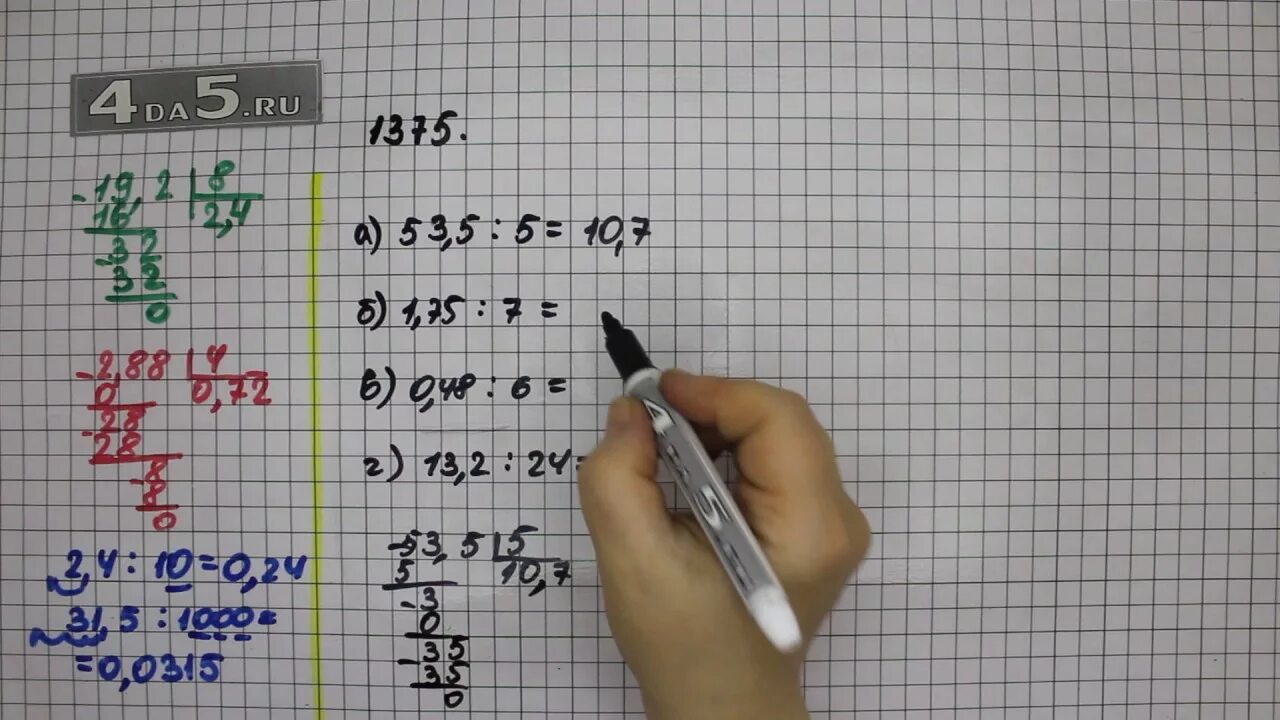 4DA5.RU
-19,2 | 8
16
2,4
-32
32
0
-2,88 | 4
0
0,72
-28
28
-8
8
0
2,4 : 10 = 0,24
31,5 : 1000 =
= 0,0315
1375.
а) 53,5 : 5 = 10,7
б) 1,75 : 7 =
в) 0,48 : 6 =
г) 13,2 : 24 =
-53,5 | 5
5
10,7
-3
0
-35
35
0